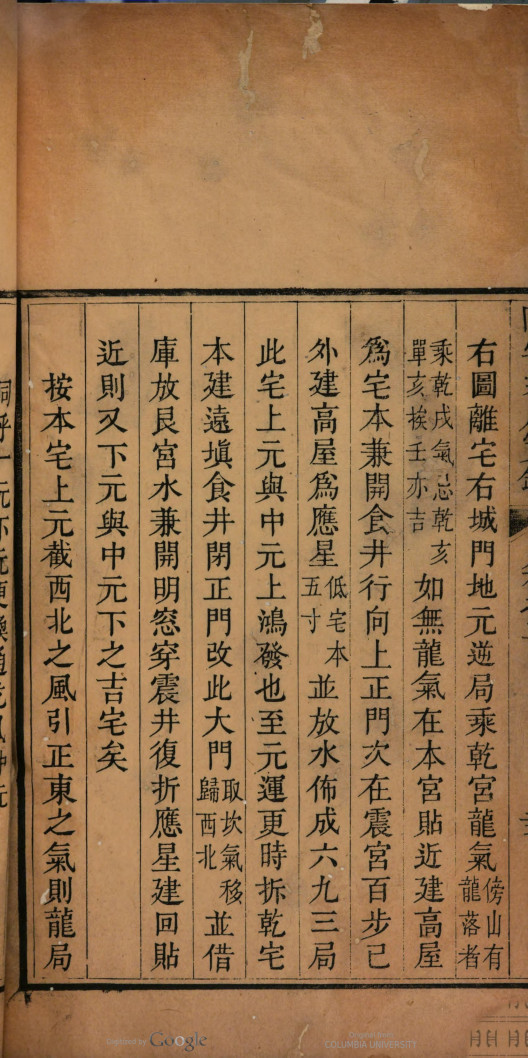 右圖離宅右城門地元逆局乘乾宮龍氣傍山有龍落者
乘乾戌氣忌乾亥單亥挨壬亦吉如無龍氣在本宮貼近建高屋
爲宅本兼開食井行向上正門次在震宮百步已
外建高屋爲應星低宅本五寸並放水佈成六九三局
此宅上元與中元上鴻發也至元運更時拆乾宅
本建遠塡食井閉正門改此大門取坎氣移歸西北並借
庫放艮宮水兼開明窓穿震井復折應星建回貼
近則又下元與中元下之吉宅矣
按本宅上元截西北之風引正東之氣則龍局
Digitized by Google
Original from
COLUMBIA UNIVERSITY